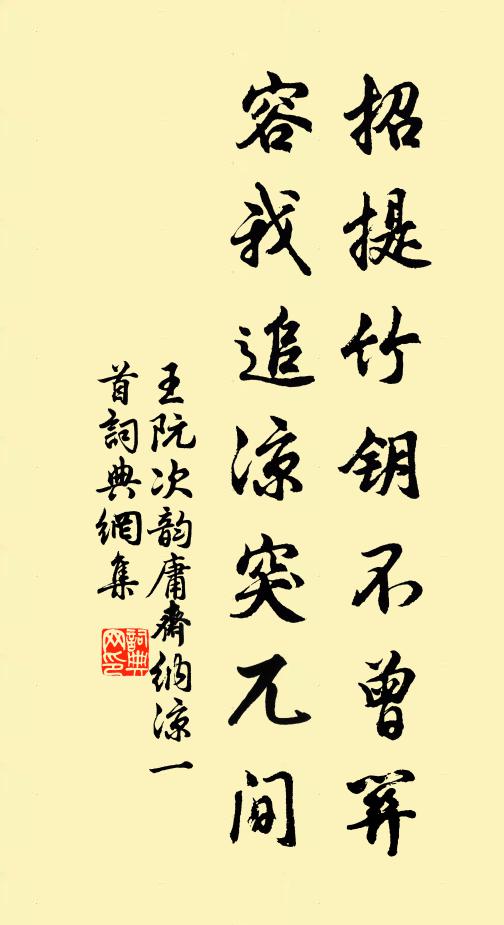 招提竹钥不曾关
容我追涼突兀间
王阮次韵庸齋納涼一
首詞典網集
詞典网印